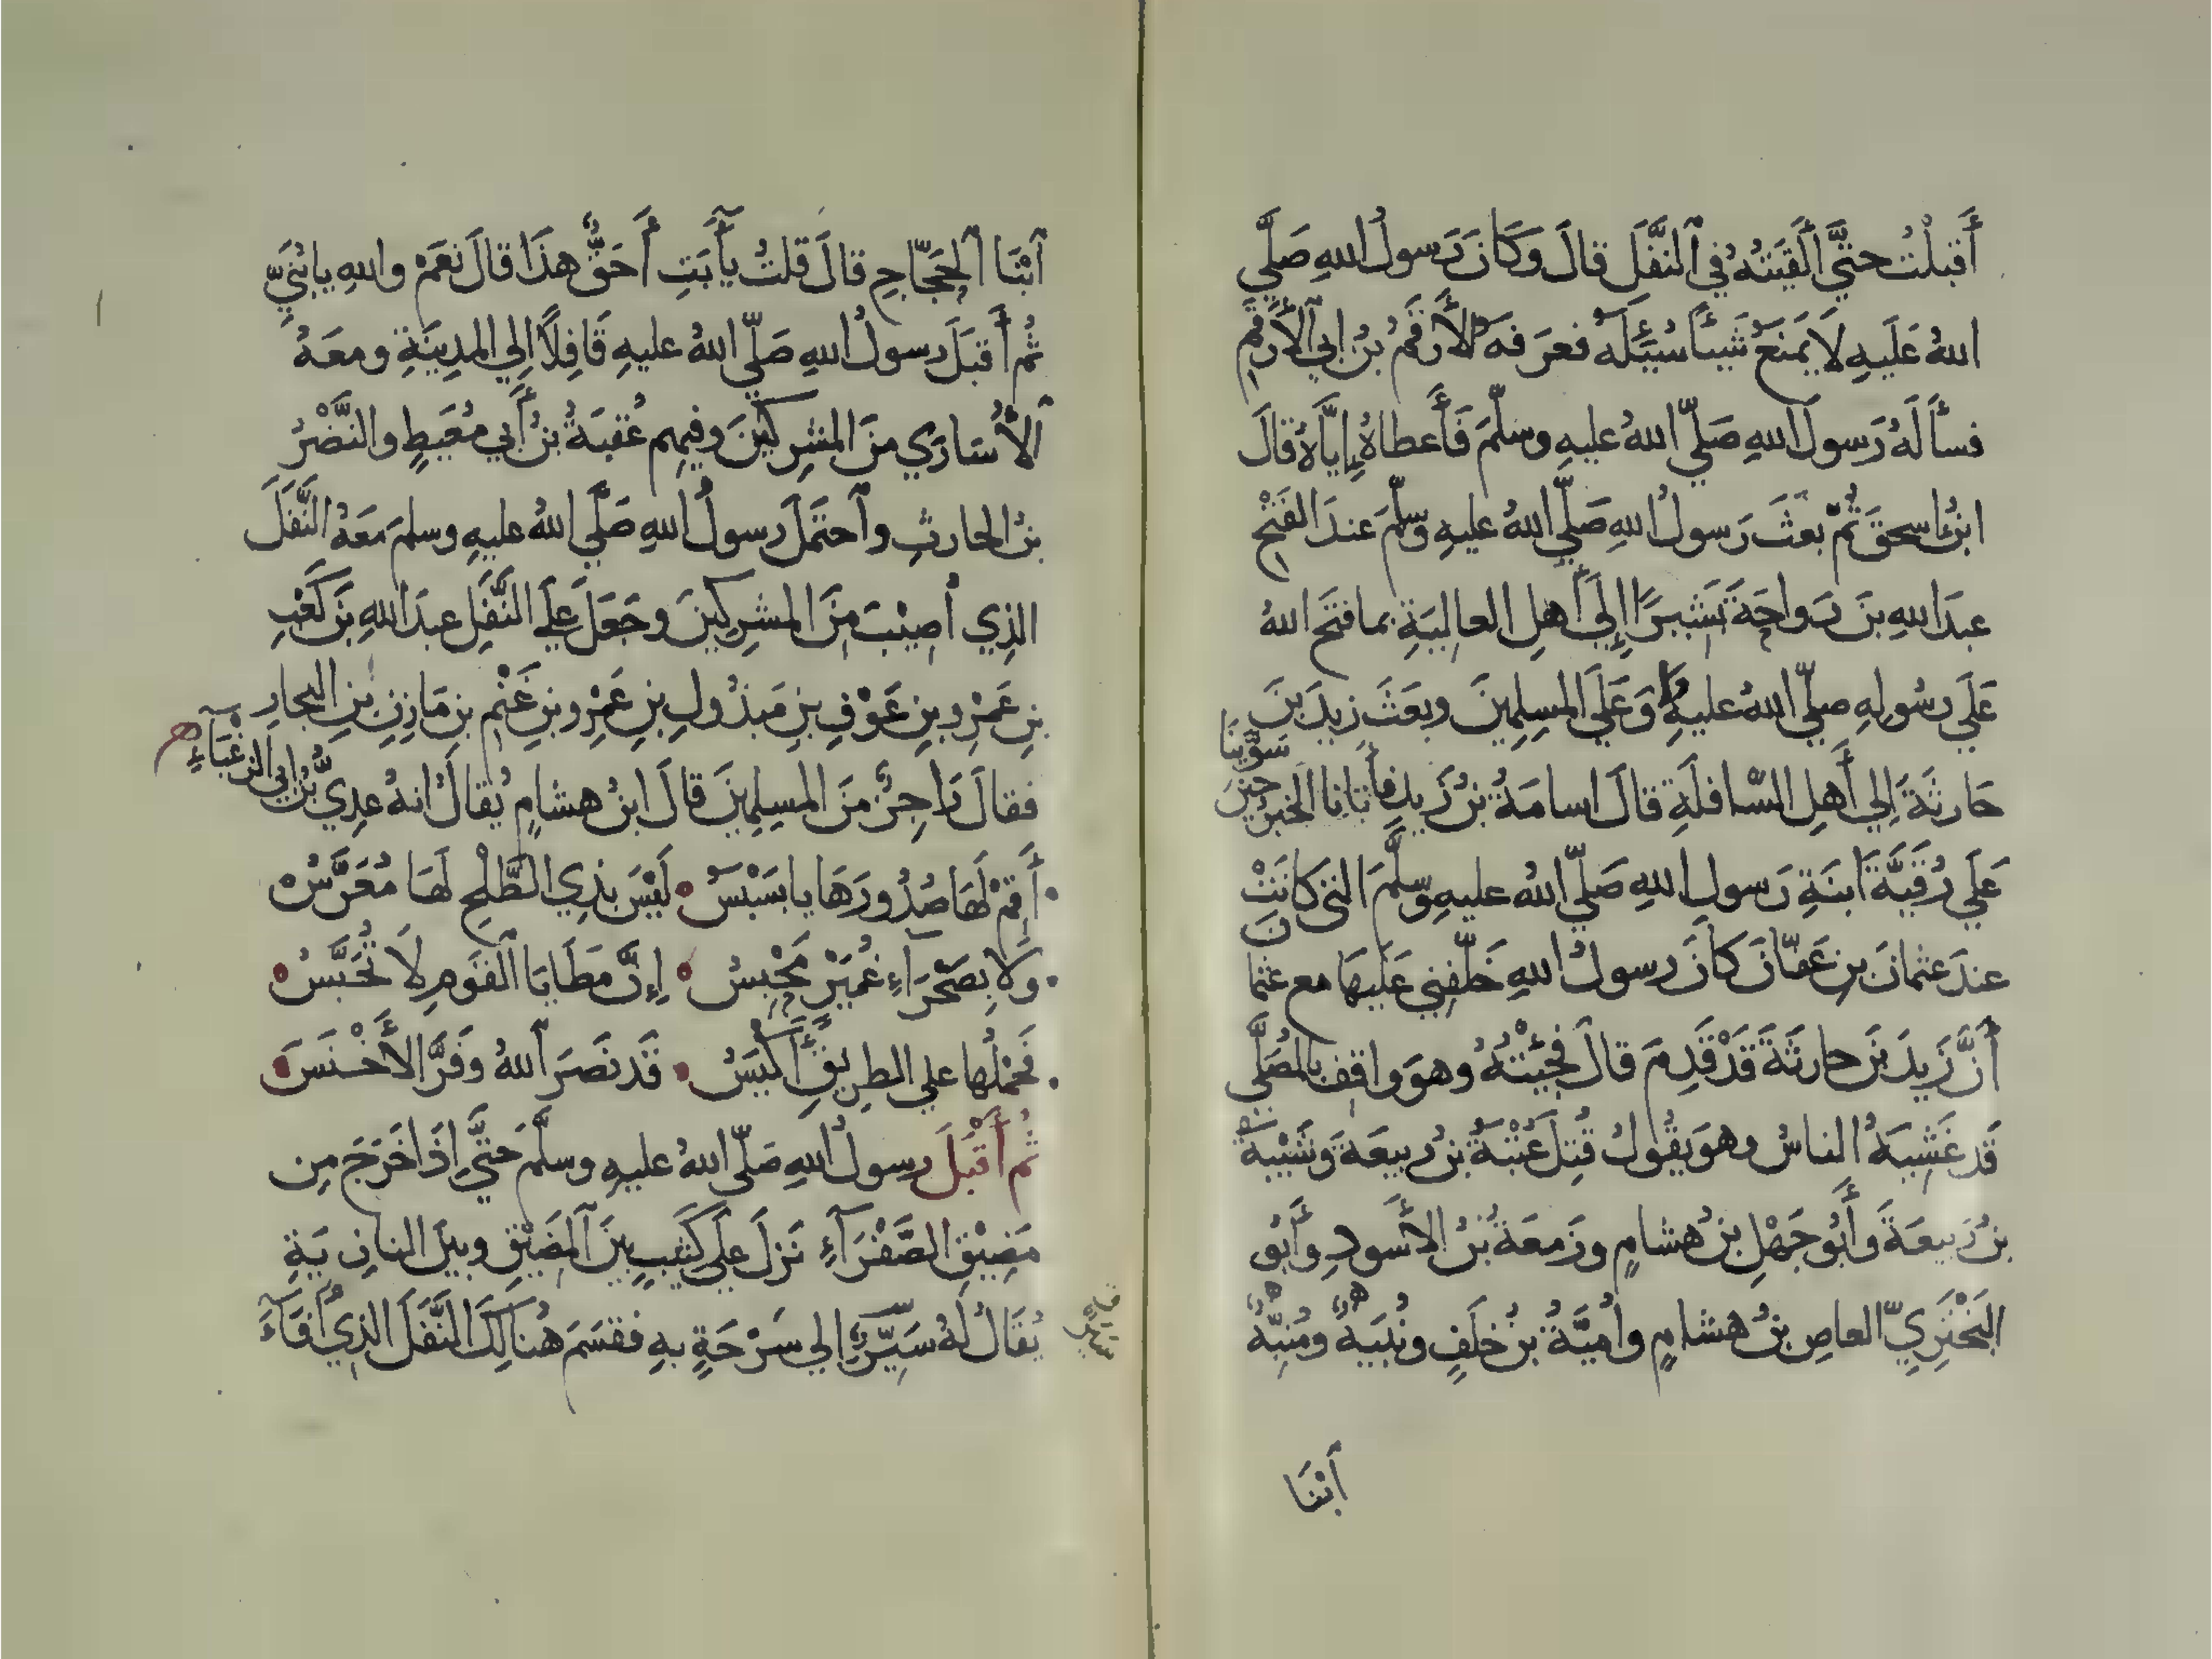 أَقبلْتُ حتَّي أَلْقَيتُهُ في ٱلنَّفَلَ قالَ وَكَانَ رَسولُ اللهِ صَلَّي
اللهُ عَلَيهِ لَا يَمنَعُ شَيئاً سُئِلَهُ فعرَفهُ الأَرقمُ بنُ ابي الأَرقمِ
فسأَلهُ رَسولَ اللهِ صَلّي اللهُ عليهِ وسلّمَ فَأَعطاهُ إِيّاهُ قالَ
ابنُ اسحقَ ثُمّ بعثَ رَسولُ اللهِ صَلّي اللهُ عليهِ وسلّمَ عندَ الفَتْحِ
عبدَ اللهِ بنَ رَواحَةَ بَشيراً إِلي أَهلِ العالِيَةِ بما فتحَ اللهُ
عَلَي رسُولهِ صلّي اللهُ عليهِ وَعَلَي المسلِمِينَ وبعَثَ زيدَ بنَ
حَارثَةَ إِلي أَهلِ السّافلَةِ قالَ اسامَةُ بنُ زَيدٍ فأَتانا الخَبرُ حينَ سَوَّينَا
عَلَي رُقَيَّةَ ابنَةِ رَسولِ اللهِ صَلّي اللهُ عليهِ وسلّمَ التي كانَتْ
عندَ عثمانَ بنِ عَفّانَ كانَ رسولُ اللهِ خَلّفني عَلَيهَا مع عثمانَ
أَنَّ زَيدَ بنَ حارثَةَ قَدْ قَدِمَ قالَ فجِئتُهُ وهوَ واقفٌ بالمُصَلَّي
قَد غَشِيَهُ الناسُ وهوَ يقُولُ قُتِلَ عُتْبَةُ بنُ ربيعَةَ وَشَيْبَةُ
بنُ رَبيعَةَ وأَبُو جَهْلِ بنُ هشامٍ وزَمعَةُ بنُ الأَسودِ وأَبُو
البَخْتَرِيّ العاصِ بنُ هشامٍ وأُميَّةُ بنُ خلَفٍ ونُبَيهٌ ومُنبِّهٌ
أبْنَا
ٱبْنَا ٱلحَجّاجِ قالَ قلتُ يأَبَتِ أَحَقٌّ هذَا قالَ نعَمْ واللهِ يا بُنَيِّ
ثُم أَقبَلَ رسولُ اللهِ صَلّي اللهُ عليهِ قَافِلًا الِي المدِينَةِ ومعَهُ
ٱلأُسَارَي منَ المشرِكينَ وفيهم عُقبَةُ بنُ أَبي مُعَيطٍ والنَّضْرُ
بنُ الحارثِ وٱحتَمَلَ رسولُ اللهِ صَلَّي اللهُ عليهِ وسلمَ معَهُ النَّفَلَ
الذِي أُصِيْبَ مِنَ المشرِكينَ وجَعَلَ عَلَي النَّفَلِ عبدَ اللهِ بنَ كَعْبِ
بنِ عَمْرِو بنِ عَوْفِ بنِ مَبذُولِ بنِ عَمْرِو بنِ غَنْمِ بنِ مَازِنِ بنِ النجارِ
فقالَ رَاجِزٌ منَ المسلِمِينَ قالَ ابنُ هشامٍ يُقالُ انهُ عدِيُّ بْنُ ابي الزغْبَآءِ
أَقِمْ لَهَا صُدُورَهَا يا بَسْبَسُ لَيْسَ بذِي الطَّلْحِ لَهَا مُعَرَّسُ
وَلَا بِصَحْرَآءِ غُمَيْرٍ مَحْبِسُ إِنَّ مَطَايَا ٱلقَومِ لَا تُحَبَّسُ
فَحَمْلُها علي الطرِيقِ أَكْيَسُ قَد نَصَرَ ٱللهُ وَفَرَّ الأَخْنَسُ
ثُم أَقْبَلَ رسولُ اللهِ صَلّي اللهُ عليهِ وسلّمَ حَتَّي إِذَا خَرَجَ مِن
مَضِيْقِ الصَّفْرَآءِ نَزلَ علَي كَثِيبٍ بينَ ٱلمَضِيْقِ وبينَ النازِيَةِ
يُقَالُ لَهُ سَيَّرٌ الي سَرْحَةٍ بهِ فقسَمَ هُنالِكَ النَّفَلَ الذِي أَفَآءَ